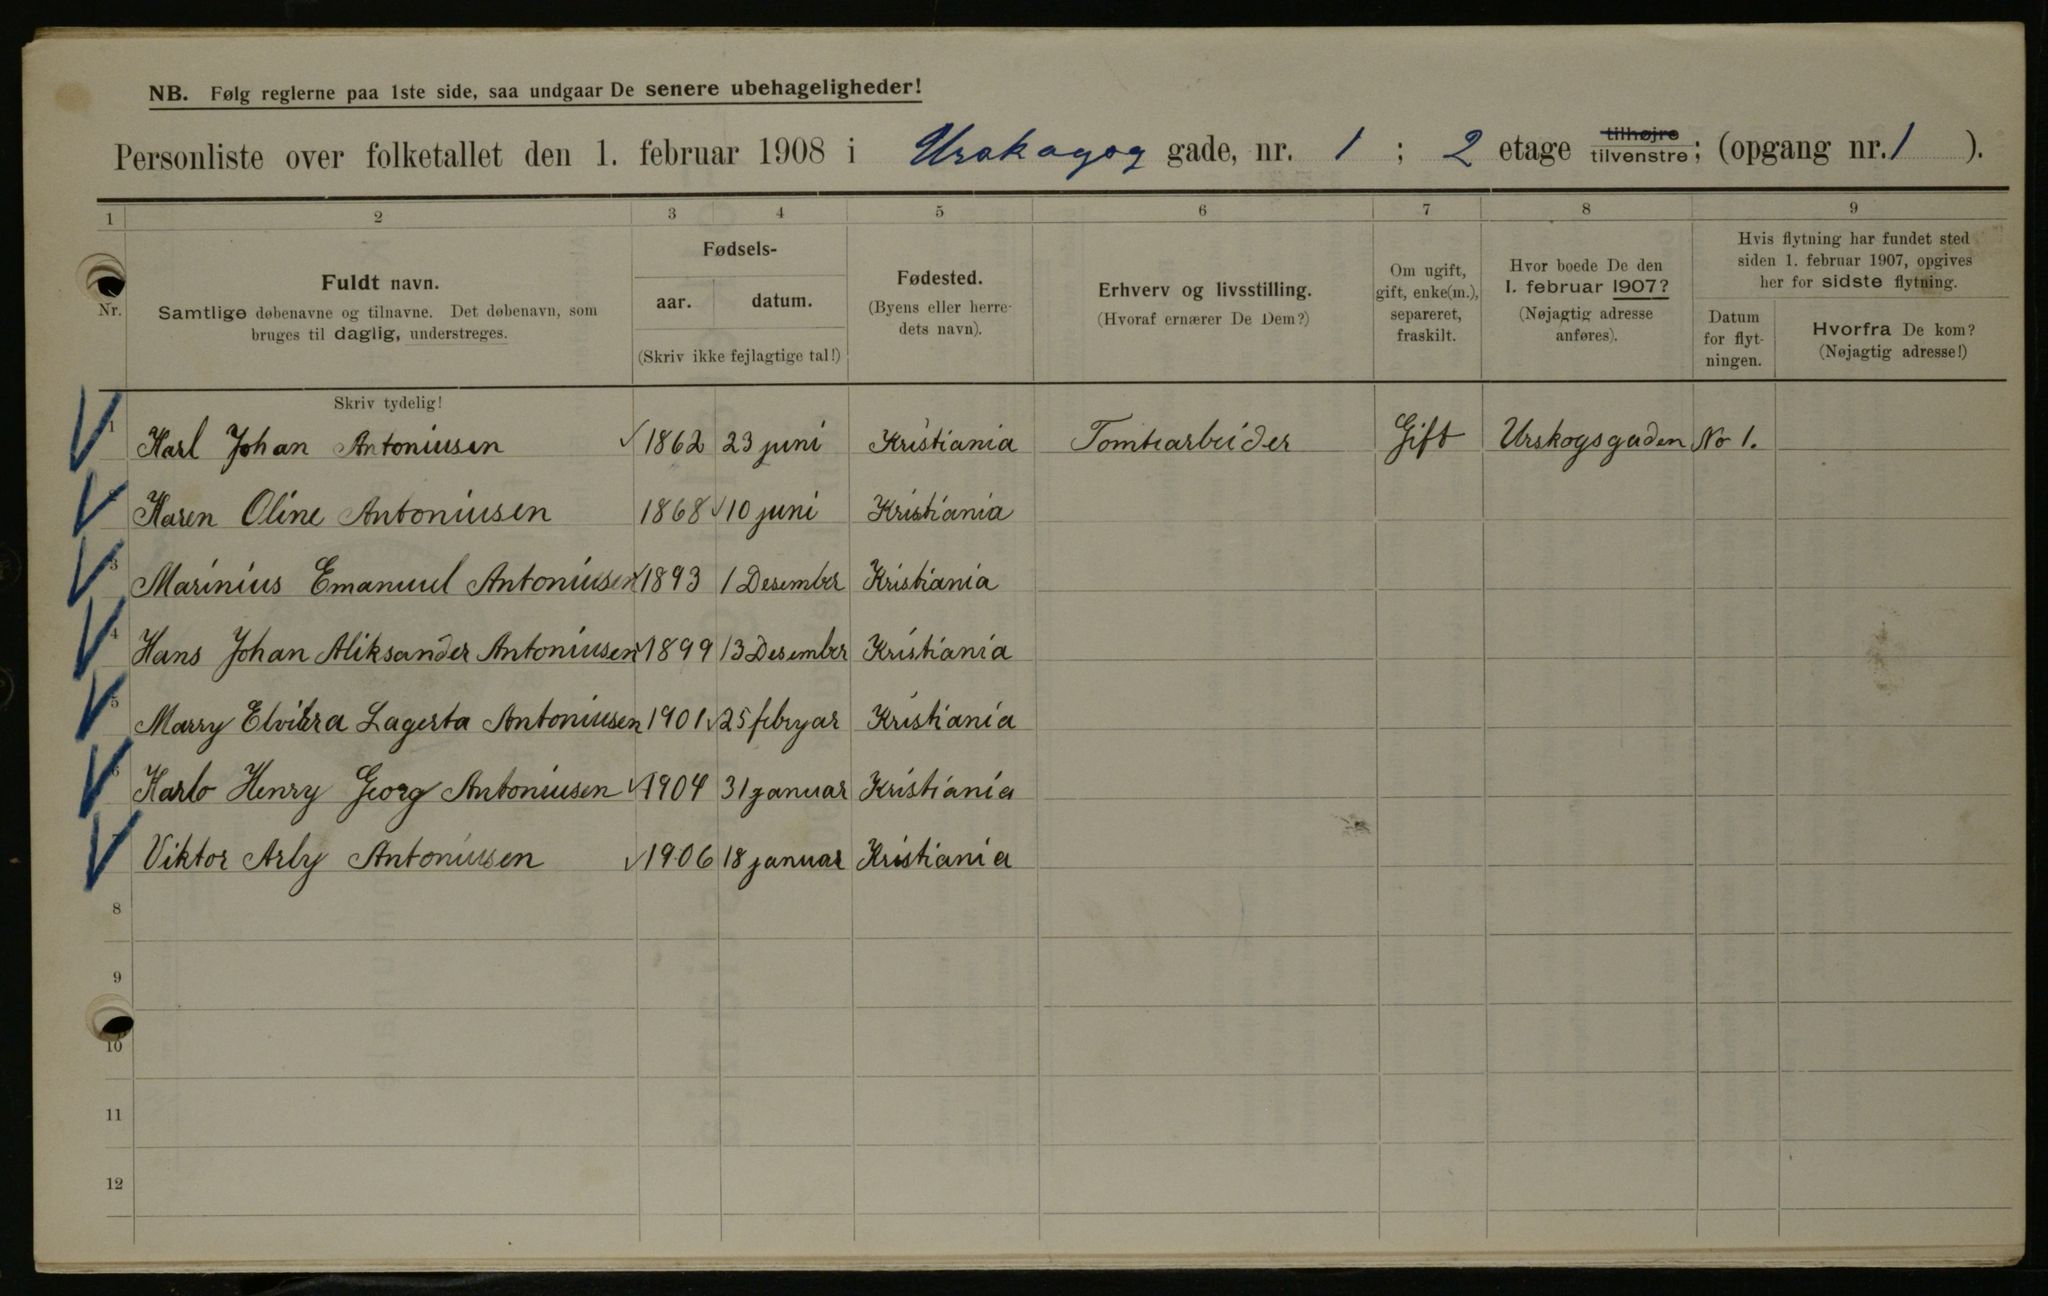 NB. Følg reglerne paa 1ste side, saa undgaar De senere ubehageligheder!
Personliste over folketallet den 1. februar 1908 i Urskogsg gade, nr. 1 ; 2 etage tilhøjre tilvenstre; (opgang nr. 1 ).
1 2 3 4 5 6 7 8 9
Nr.
Fuldt navn.
Samtlige døbenavne og tilnavne. Det døbenavn, som
bruges til daglig, understreges.
Skriv tydelig!
Fødsels-
aar. datum.
(Skriv ikke fejlagtige tal!)
Fødested.
(Byens eller herre-
dets navn).
Erhverv og livsstilling.
(Hvoraf ernærer De Dem?)
Om ugift,
gift, enke(m.),
separeret,
fraskilt.
Hvor boede De den
1. februar 1907?
(Nøjagtig adresse
anføres).
Hvis flytning har fundet sted
siden 1. februar 1907, opgives
her for sidste flytning.
Datum
for flyt-
ningen.
Hvorfra De kom?
(Nøjagtig adresse!)
1 Karl Johan Antoniusen 1862 23 juni Kristiania Tomtearbeider Gift Urskogsgaden No 1.
Karen Oline Antoniusen 1868 10 juni Kristiania
3 Marinius Emanuel Antoniusen 1893 1 Desember Kristiania
4 Hans Johan Aliksander Antoniusen 1899 13 Desember Kristiania
5 Marry Elvira Lagerta Antoniusen 1901 25 febryar Kristiania
6 Karlo Henry Georg Antoniusen 1904 31 januar Kristiania
7 Viktor Arly Antoniusen 1906 18 januar Kristiania
8
9
10
11
12